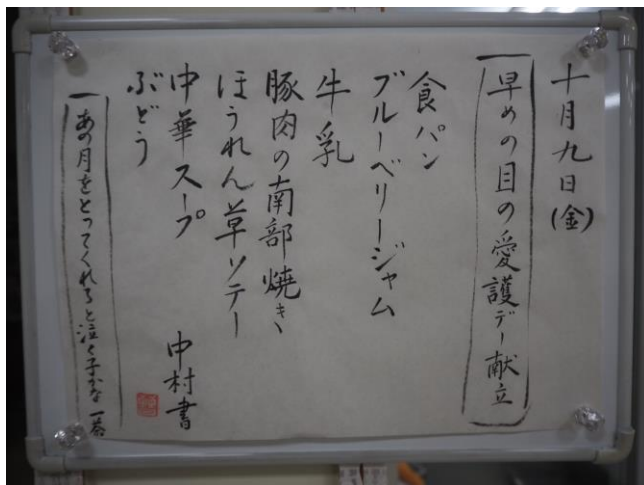 十月九日(金)
早めの目の愛護デー献立
食パン
ブルーベリージャム
牛乳
豚肉の南部焼き
ほうれん草ソテー
中華スープ
ぶどう
中村書
あの月をとってくれろと泣く子かな 一茶